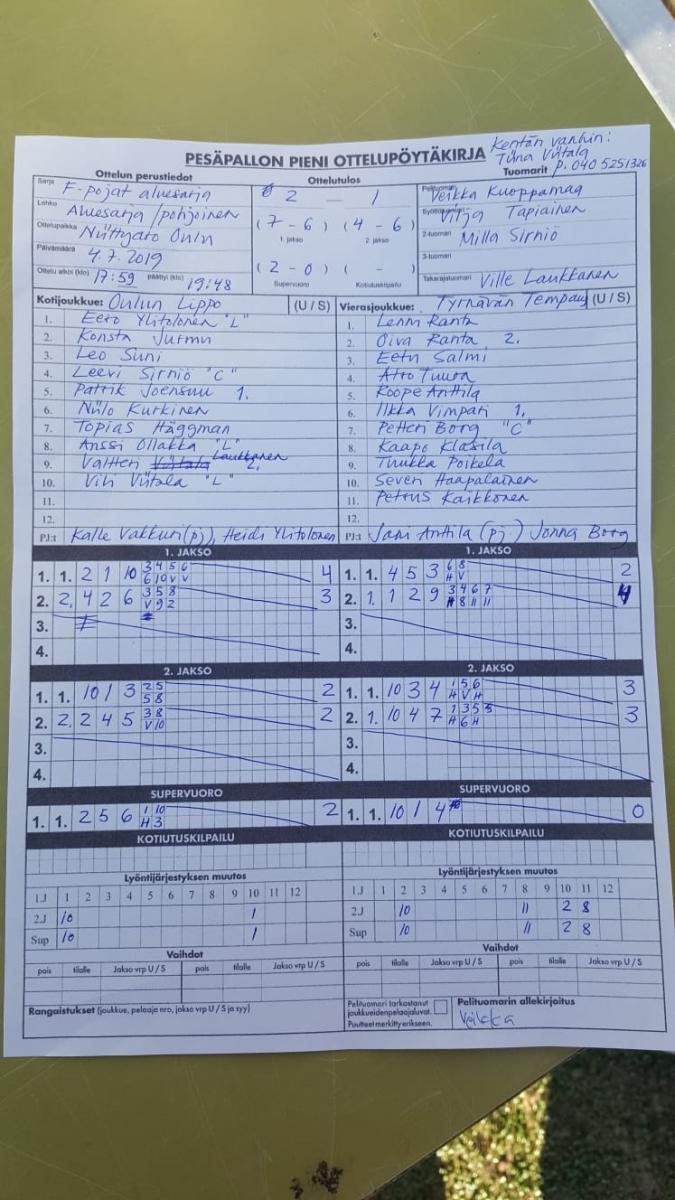 PESÄPALLON PIENI OTTELUPÖYTÄKIRJA
Kentän vanhin:
Tiina Viitala
P. 040 5251326
Ottelun perustiedot
Sarja F-pojat aluesarja
Lohko Aluesarja/pohjoinen
Ottelupaikka Niittyaro Oulu
Päivämäärä 4.7.2019
Ottelu alkoi (klo) 17:59 päättyi (klo) 19:48
Ottelutulos
2 — 1
(7-6) (4-6)
1. jakso 2. jakso
(2-0) ( - )
Supervuoro Kotiutuskilpailu
Tuomarit
Pelituomari Veikka Kuoppamaa
Syöttötuomari Viljа Tapiainen
2-tuomari Milla Sirniö
3-tuomari
Takarajatuomari Ville Laukkanen
Kotijoukkue: Oulun Lippo (U / S)
1. Eero Ylitolonen "L"
2. Konsta Jurmu
3. Leo Suni
4. Leevi Sirniö "C"
5. Patrik Joensuu 1.
6. Niilo Kurkinen
7. Topias Häggman
8. Anssi Ollakka "L"
9. Valtteri Laukkanen 2.
10. Vili Viitala "L"
11.
12.
PJ:t Kalle Vakkuri (pj), Heidi Ylitolonen
Vierasjoukkue: Tyrnävän Tempaus (U / S)
1. Lenni Ranta
2. Oiva Ranta 2.
3. Eetu Salmi
4. Atro Tuura
5. Roope Anttila
6. Ilkka Vimpari 1.
7. Petteri Borg "C"
8. Kaapo Klasila
9. Tuukka Poikela
10. Seven Haapalainen
11. Petrus Kaikkonen
12.
PJ:t Jani Anttila (pj) Jonna Borg
1. JAKSO
1. 1. 2 1 10 3 4 5 6 4
6 10 V V
2. 2. 4 2 6 3 5 8 3
V 9 2
3.
4.
1. JAKSO
1. 1. 4 5 3 6 8 2
H V
2. 1. 1 2 9 3 4 6 7 4
H 8 11 11
3.
4.
2. JAKSO
1. 1. 10 1 3 2 5 2
5 8
2. 2. 2 4 5 3 8 2
V 10
3.
4.
2. JAKSO
1. 1. 10 3 4 1 5 6 3
H V H
2. 1. 10 4 7 1 3 5 3
H 6 H
3.
4.
SUPERVUORO
1. 1. 2 5 6 1 10 2
H 3
SUPERVUORO
1. 1. 10 1 4 0
KOTIUTUSKILPAILU
KOTIUTUSKILPAILU
Lyöntijärjestyksen muutos
1.J 1 2 3 4 5 6 7 8 9 10 11 12
2.J 10 1
Sup 10 1
Lyöntijärjestyksen muutos
1.J 1 2 3 4 5 6 7 8 9 10 11 12
2.J 10 11 2 8
Sup 10 11 2 8
Vaihdot
pois tilalle Jakso vrp U / S pois tilalle Jakso vrp U / S
Vaihdot
pois tilalle Jakso vrp U / S pois tilalle Jakso vrp U / S
Rangaistukset (joukkue, pelaaja nro, jakso vrp U / S ja syy)
Pelituomari tarkastanut
joukkueidenpelaajaluvat.
Puutteet merkitty erikseen.
Pelituomarin allekirjoitus
Veikka